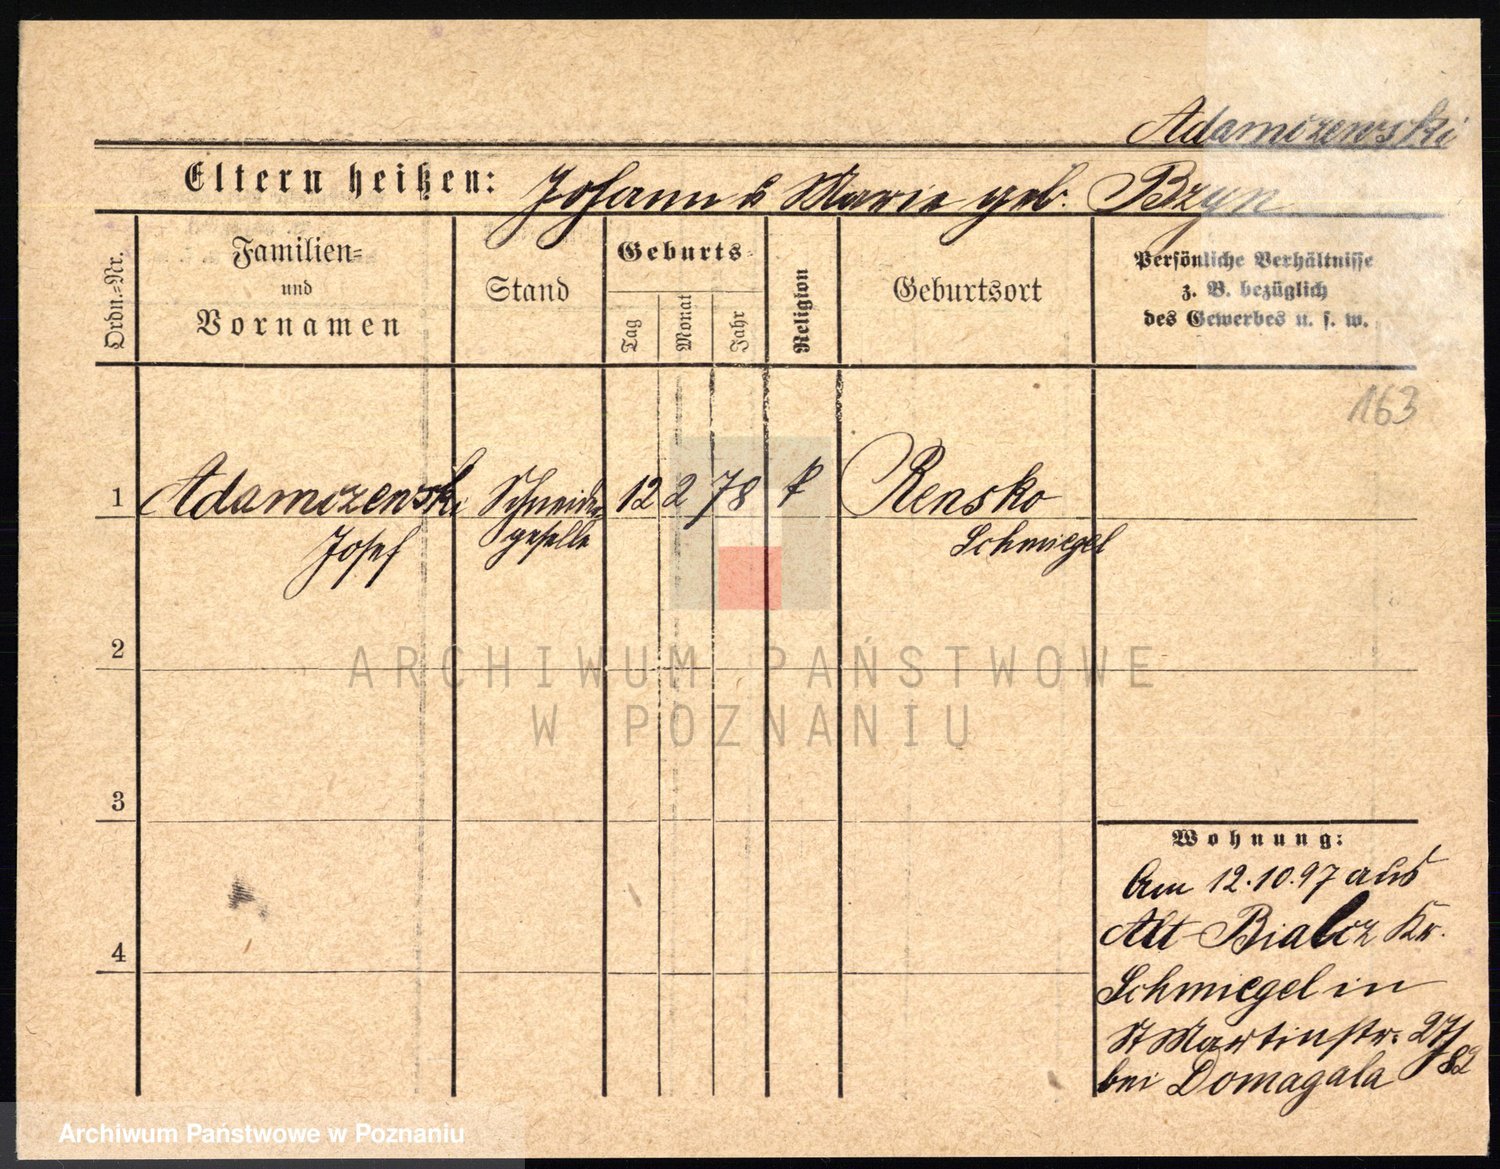 Adamczewski
Eltern heißen: Johann u Marie geb. Bzyn
Ordn.=Nr.
Familien=
und
Vornamen
Stand
Geburts=
Tag
Monat
Jahr
Religion
Geburtsort
Persönliche Verhältnisse
z. B. bezüglich
des Gewerbes u. s. w.
163
1 Adamczewski Schneider 12 2 78 k Rensko
Josef geselle Schmiegel
2
ARCHIWUM PAŃSTWOWE
W POZNANIU
3
Wohnung:
Am 12.10.97 aus
4 Alt Bialcz Kr.
Schmiegel in
St Martinstr. 27/82
bei Domagala
Archiwum Państwowe w Poznaniu